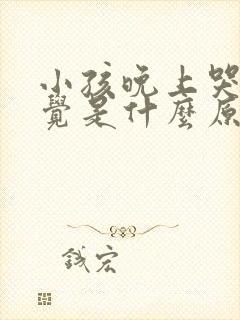 小孩晚上哭
覺是什麼原
錢宏